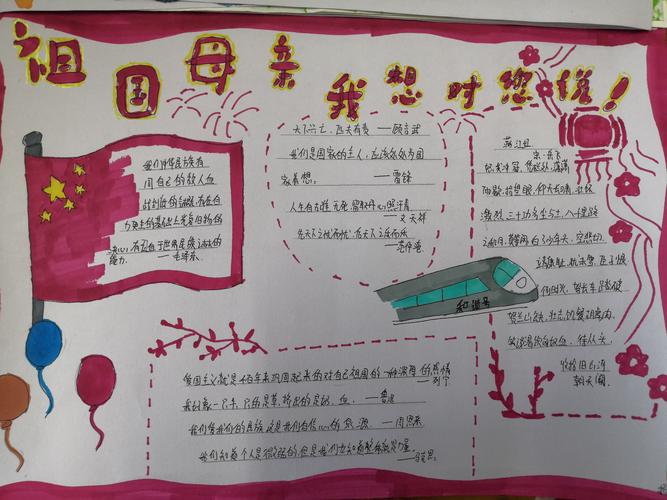 祖国母亲
我想对您说!
我们中华民族有
用自己的敌人血
战到底的气概,有在自
力更生的基础上光复旧物的
决心,有自立于世界民族之林的
能力。——毛泽东
天下兴亡,匹夫有责 ——顾炎武
我们是国家的主人,应该处处为国
家着想。——雷锋
人生自古谁无死,留取丹心照汗青
——文天祥
先天下之忧而忧,后天下之乐而乐
——范仲淹
和谐号
满江红
宋·岳飞
怒发冲冠,凭栏处,潇潇
雨歇。抬望眼,仰天长啸,壮怀
激烈。三十功名尘与土,八千里路
云和月。莫等闲,白了少年头,空悲切。
靖康耻,犹未雪,臣子恨
何时灭。驾长车,踏破
贺兰山缺。壮志饥餐胡虏肉,
笑谈渴饮匈奴血。待从头,
收拾旧山河
朝天阙。
爱国主义就是千百年来巩固起来的对自己祖国的一种深厚的感情
——列宁
我好象一只牛,吃的是草,挤出的是奶、血。——鲁迅
我们爱我们的民族,这是我们自信心的泉源。——周恩来
我们知道个人是微弱的,但是我们也知道整体就是力量。
——马克思